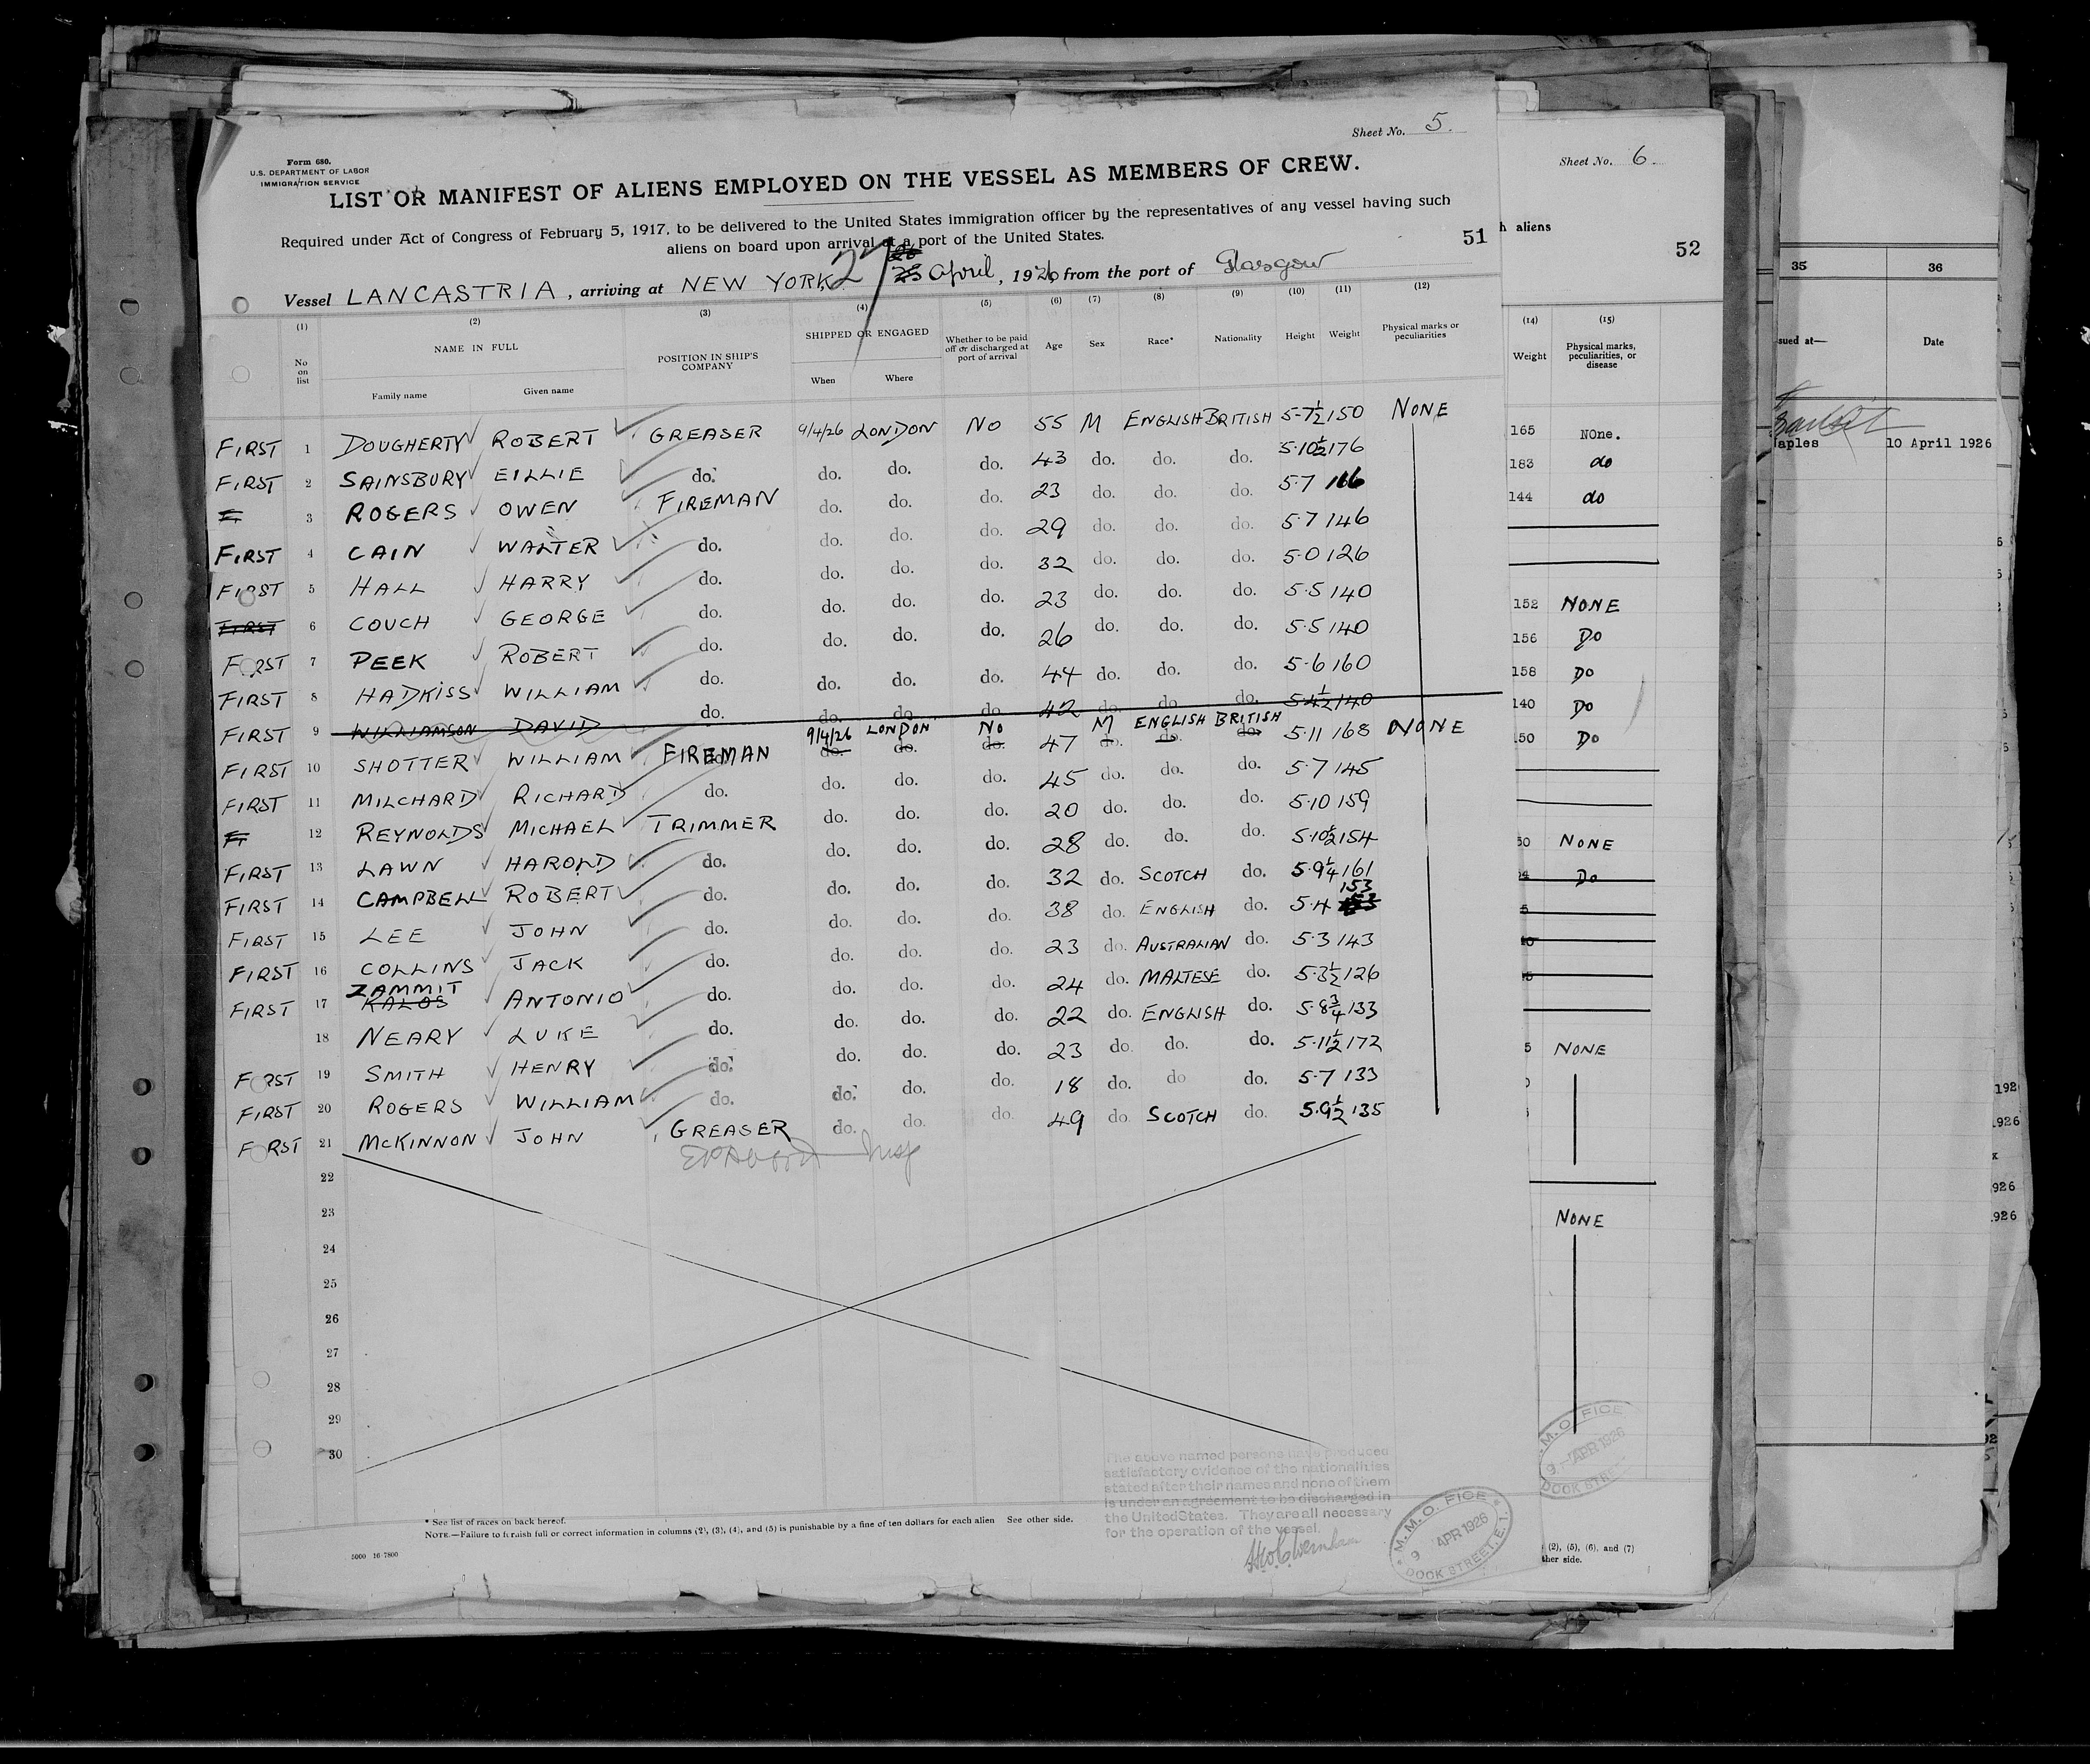 Sheet No. 5.
Form 680.
U.S. DEPARTMENT OF LABOR
IMMIGRATION SERVICE
LIST OR MANIFEST OF ALIENS EMPLOYED ON THE VESSEL AS MEMBERS OF CREW.
Required under Act of Congress of February 5, 1917, to be delivered to the United States immigration officer by the representatives of any vessel having such
aliens on board upon arrival at a port of the United States.
51
Vessel LANCASTRIA, arriving at NEW YORK 27 April, 1926, from the port of Glasgow
(1) (2) (3) (4) (5) (6) (7) (8) (9) (10) (11) (12)
No on list NAME IN FULL POSITION IN SHIP'S COMPANY SHIPPED OR ENGAGED Whether to be paid off or discharged at port of arrival Age Sex Race* Nationality Height Weight Physical marks or peculiarities
Family name Given name When Where
FIRST 1 DOUGHERTY ROBERT GREASER 9/4/26 LONDON NO 55 M ENGLISH BRITISH 5-7½ 150 NONE
FIRST 2 SAINSBURY EILLIE do. do. do. do. 43 do. do. do. 5·10½ 176
F. 3 ROGERS OWEN FIREMAN do. do. do. 23 do. do. do. 5·7 166
FIRST 4 CAIN WALTER do. do. do. do. 29 do. do. do. 5·7 146
FIRST 5 HALL HARRY do. do. do. do. 32 do. do. do. 5·0 126
FIRST 6 COUCH GEORGE do. do. do. do. 23 do. do. do. 5·5 140
FIRST 7 PEEK ROBERT do. do. do. do. 26 do. do. do. 5·5 140
FIRST 8 HADKISS WILLIAM do. do. do. do. 44 do. do. do. 5·6 160
FIRST 9 WILLIAMSON DAVID do. do. do. do. 42 do. do. do. 5·4½ 140
FIRST 10 SHOTTER WILLIAM FIREMAN 9/4/26 LONDON NO 47 M ENGLISH BRITISH 5·11 168 NONE
FIRST 11 MILCHARD RICHARD do. do. do. do. 45 do. do. do. 5·7 145
F. 12 REYNOLDS MICHAEL TRIMMER do. do. do. 20 do. do. do. 5·10 159
FIRST 13 LAWN HAROLD do. do. do. do. 28 do. do. do. 5·10½ 154
FIRST 14 CAMPBELL ROBERT do. do. do. do. 32 do. SCOTCH do. 5·9¼ 161
FIRST 15 LEE JOHN do. do. do. do. 38 do. ENGLISH do. 5·4 153
FIRST 16 COLLINS JACK do. do. do. do. 23 do. AUSTRALIAN do. 5·3 143
FIRST 17 ZAMMIT KALOS ANTONIO do. do. do. do. 24 do. MALTESE do. 5·3½ 126
18 NEARY LUKE do. do. do. do. 22 do. ENGLISH do. 5·8¾ 133
FIRST 19 SMITH HENRY do. do. do. do. 23 do. do. do. 5·11½ 172
FIRST 20 ROGERS WILLIAM do. do. do. do. 18 do. do do. 5·7 133
FIRST 21 McKINNON JOHN GREASER do. do. do. 49 do SCOTCH do. 5·9½ 135
Insp
22
23
24
25
26
27
28
29
30
The above named persons have produced
satisfactory evidence of the nationalities
stated after their names and none of them
is under an agreement to be discharged in
the United States. They are all necessary
for the operation of the vessel.
M.M.O. OFFICE
9 APR 1926
DOCK STREET, E.1.
* See list of races on back hereof.
NOTE.—Failure to furnish full or correct information in columns (2), (3), (4), and (5) is punishable by a fine of ten dollars for each alien See other side.
5000 16-7800
Sheet No. 6.
h aliens
52
(14) (15)
Weight Physical marks, peculiarities, or disease
165 None.
183 do
144 do
152 NONE
156 Do
158 Do
140 Do
150 Do
50 NONE
Do
5 NONE
NONE
M.M. O FICE
9 APR 1926
DOCK STRE
(2), (5), (6), and (7)
ther side.
35 36
sued at— Date
aples 10 April 1926
192
.926
x
926
.926